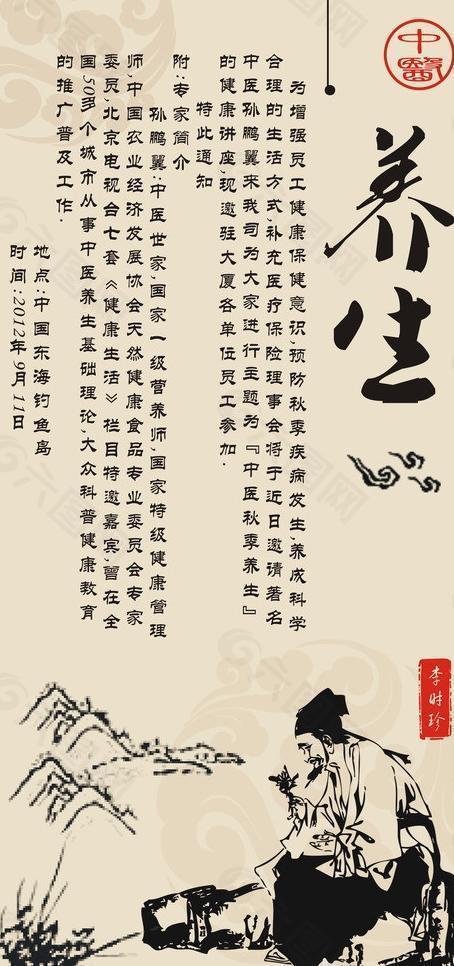 中醫
养生
为增强员工健康保健意识,预防秋季疾病发生,养成科学
合理的生活方式,补充医疗保险理事会将于近日邀请著名
中医孙鹏翼来我司为大家进行主题为『中医秋季养生』
的健康讲座,现邀驻大厦各单位员工参加.
特此通知
附:专家简介
孙鹏翼:中医世家,国家一级营养师,国家特级健康管理
师,中国农业经济发展协会天然健康食品专业委员会专家
委员,北京电视台七套《健康生活》栏目特邀嘉宾,曾在全
国50多个城市从事中医养生基础理论,大众科普健康教育
的推广普及工作.
地点:中国东海钓鱼岛
时间:2012年9月11日
李时珍